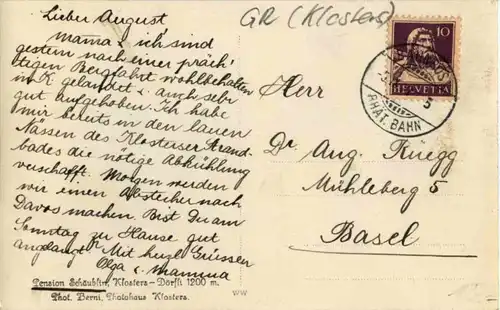 Lieber August
Mama & ich sind
gestern nach einer präch-
tigen Bergfahrt wohlbehalten
in K. gelandet & auch sehr
gut aufgehoben. Ich habe
mir bereits in den lauen
Nassen des Klosterser Strand-
bades die nötige Abkühlung
verschafft. Morgen werden
wir einen Abstecher nach
Davos machen. Bist Du am
Sonntag zu Hause gut
angelangt? Mit herzl. Grüssen
Olga & Mamma
Pension Schäublin, Klosters-Dörfli 1200 m.
Phot. Berni, Photohaus Klosters.
WW
GR (Klosters)
10
HELVETIA
RHÄT. BAHN
Herr
Dr. Aug. Rüegg
Mühleberg 5
Basel